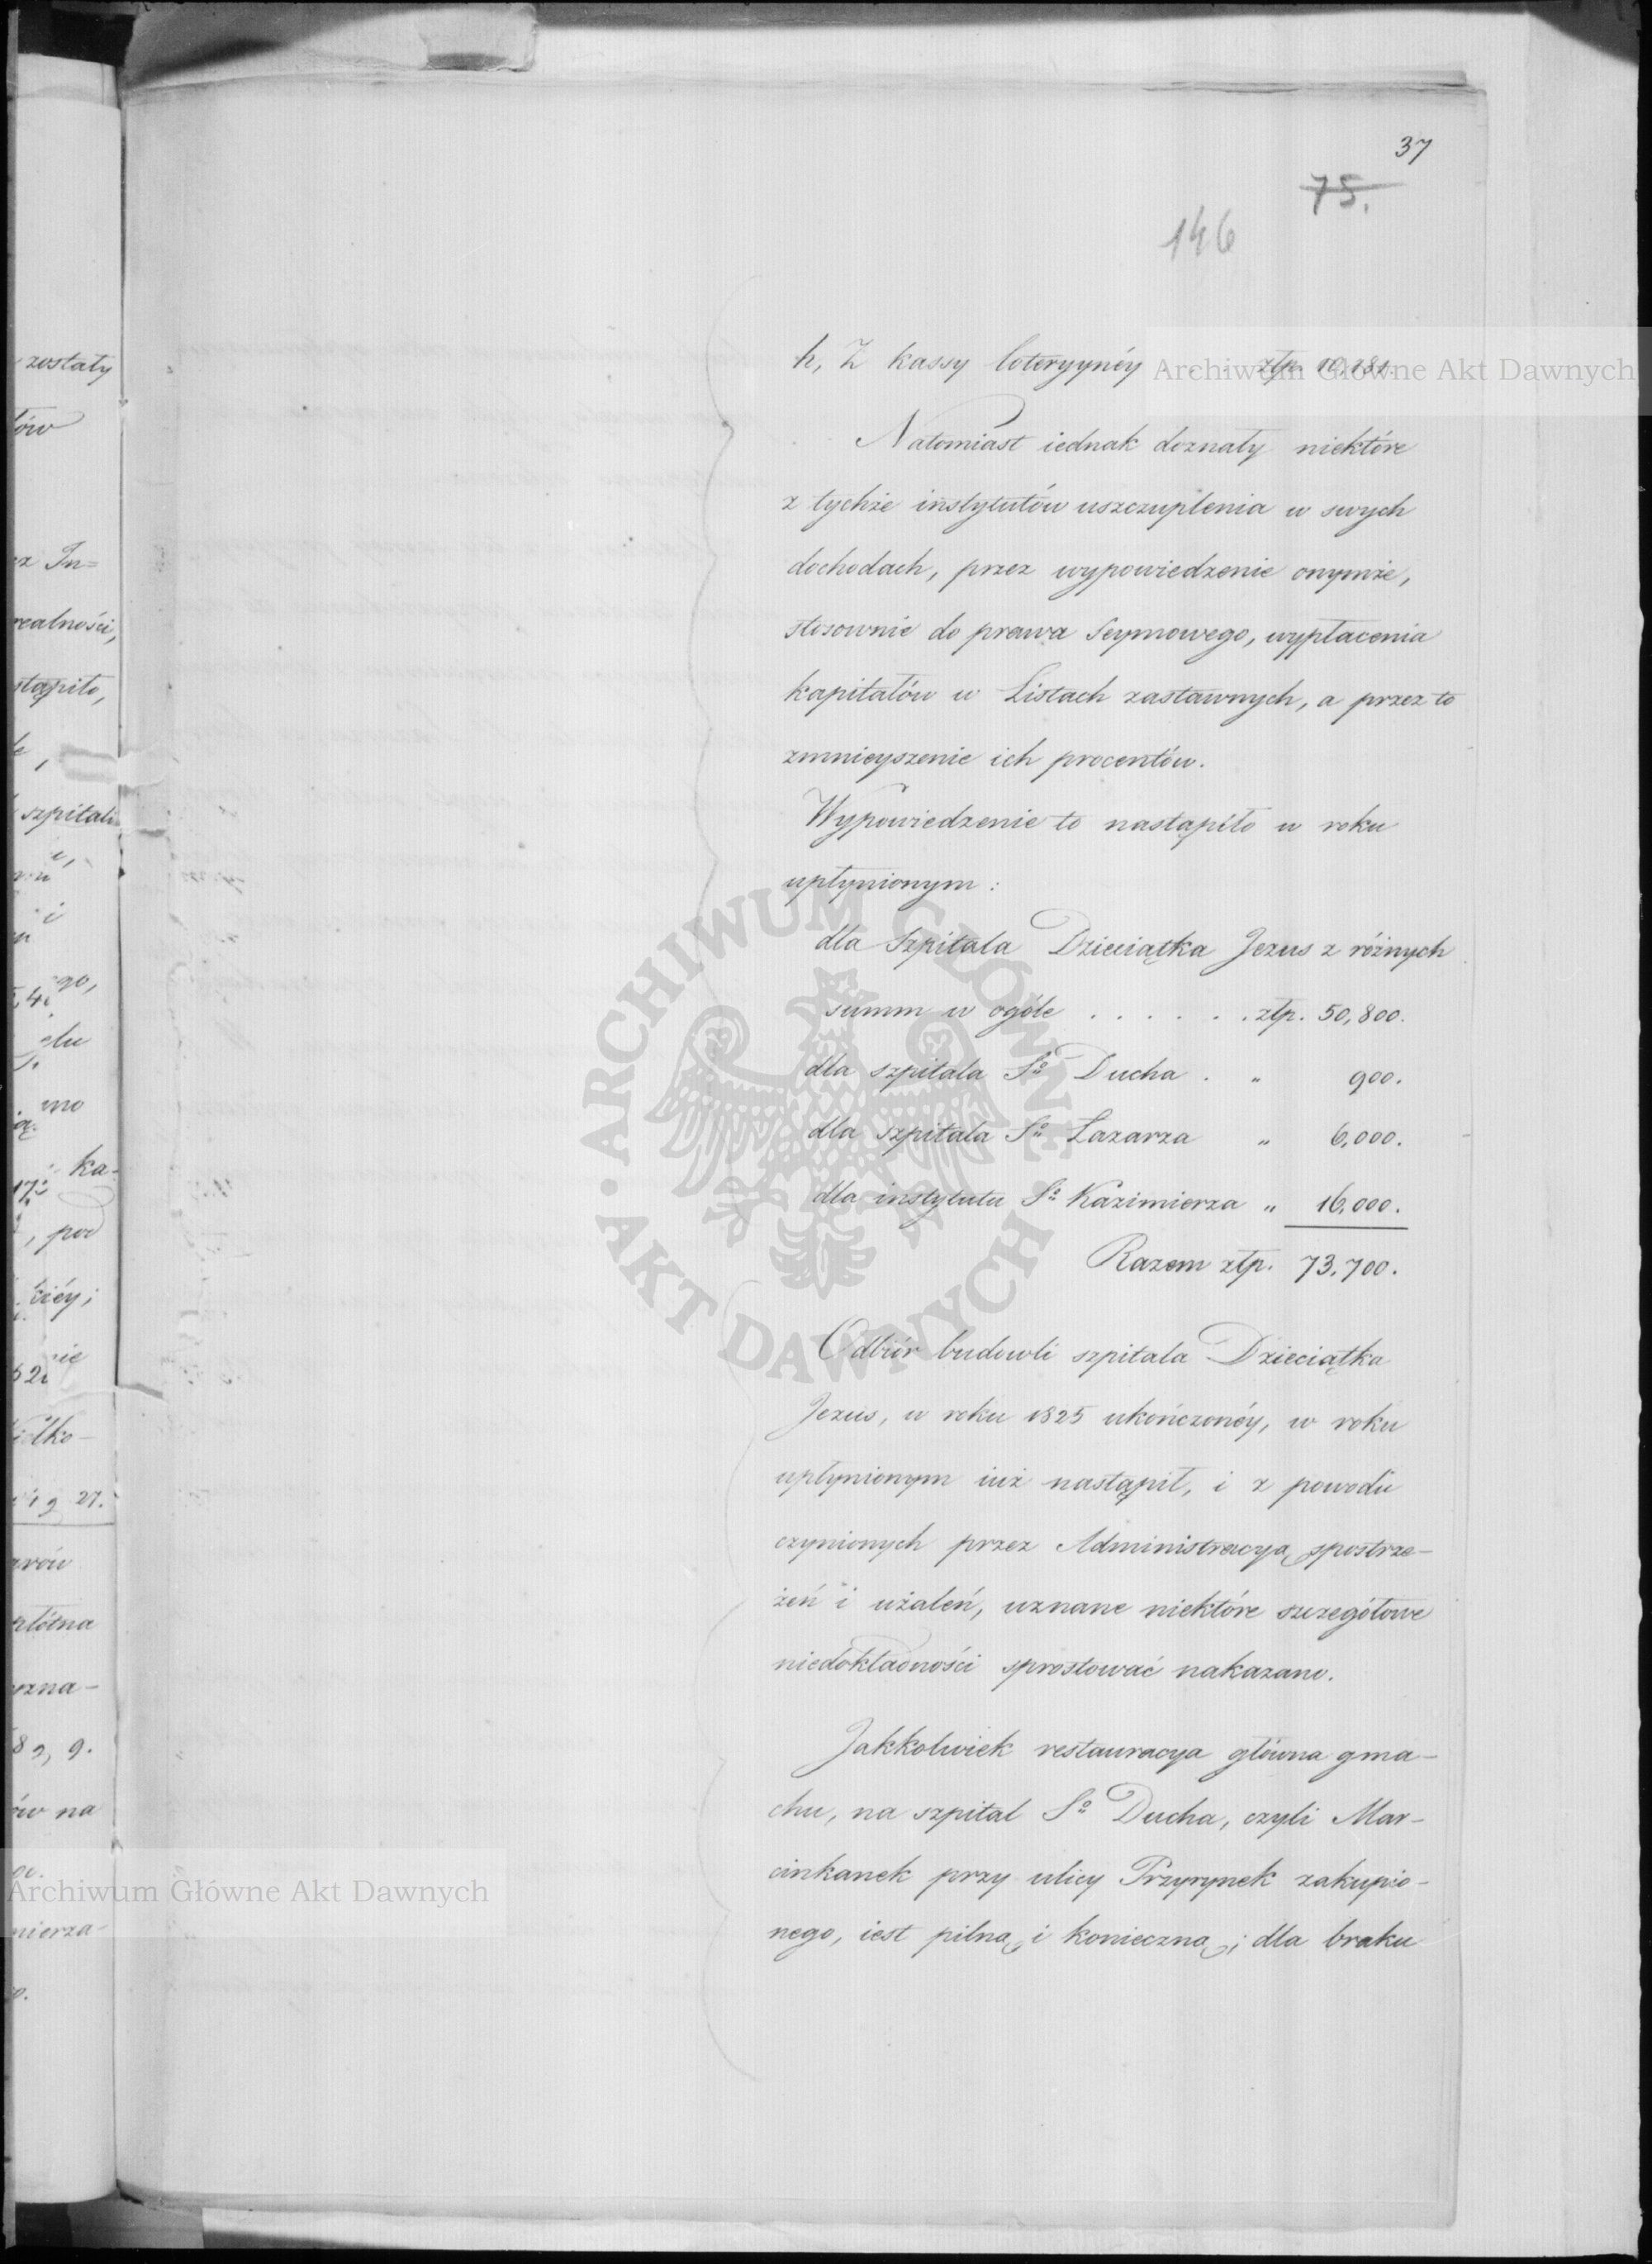 37
75.
146
h, Z kassy loteryynéy . . . złp. 10,181.
Natomiast iednak doznały niektóre
z tychże instytutów uszczuplenia w swych
dochodach, przez wypowiedzenie onymże,
stosownie do prawa Seymowego, wypłacenia
kapitałów w Listach zastawnych, a przez to
zmnieyszenie ich procentów.
Wypowiedzenie to nastąpiło w roku
upłynionym:
dla Szpitala Dzieciątka Jezus z różnych
summ w ogóle . . . . . . złp. 50,800.
dla szpitala Sº Ducha . „ 900.
dla szpitala Sº Łazarza „ 6,000.
dla instytutu Sº Kazimierza „ 16,000.
Razem złp. 73,700.
Odbiór budowli szpitala Dzieciątka
Jezus, w roku 1825 ukończonéy, w roku
upłynionym iuż nastąpił, i z powodu
czynionych przez Administracyą spostrze-
żeń i użaleń, uznane niektóre szczegółowe
niedokładności sprostować nakazano.
Jakkolwiek restauracya główna gma-
chu, na szpital Sº Ducha, czyli Mar-
cinkanek przy ulicy Przyrynek zakupio-
nego, iest pilną i konieczną; dla braku
zostały
ów
z In=
realności,
stąpiło,
szpitali
go,
elu
mo
ka-
, pod
ciéy;
nie
27.
płótna
ozna-
ów na
mierza-
Archiwum Główne Akt Dawnych
ARCHIWUM GŁÓWNE AKT DAWNYCH
Archiwum Główne Akt Dawnych